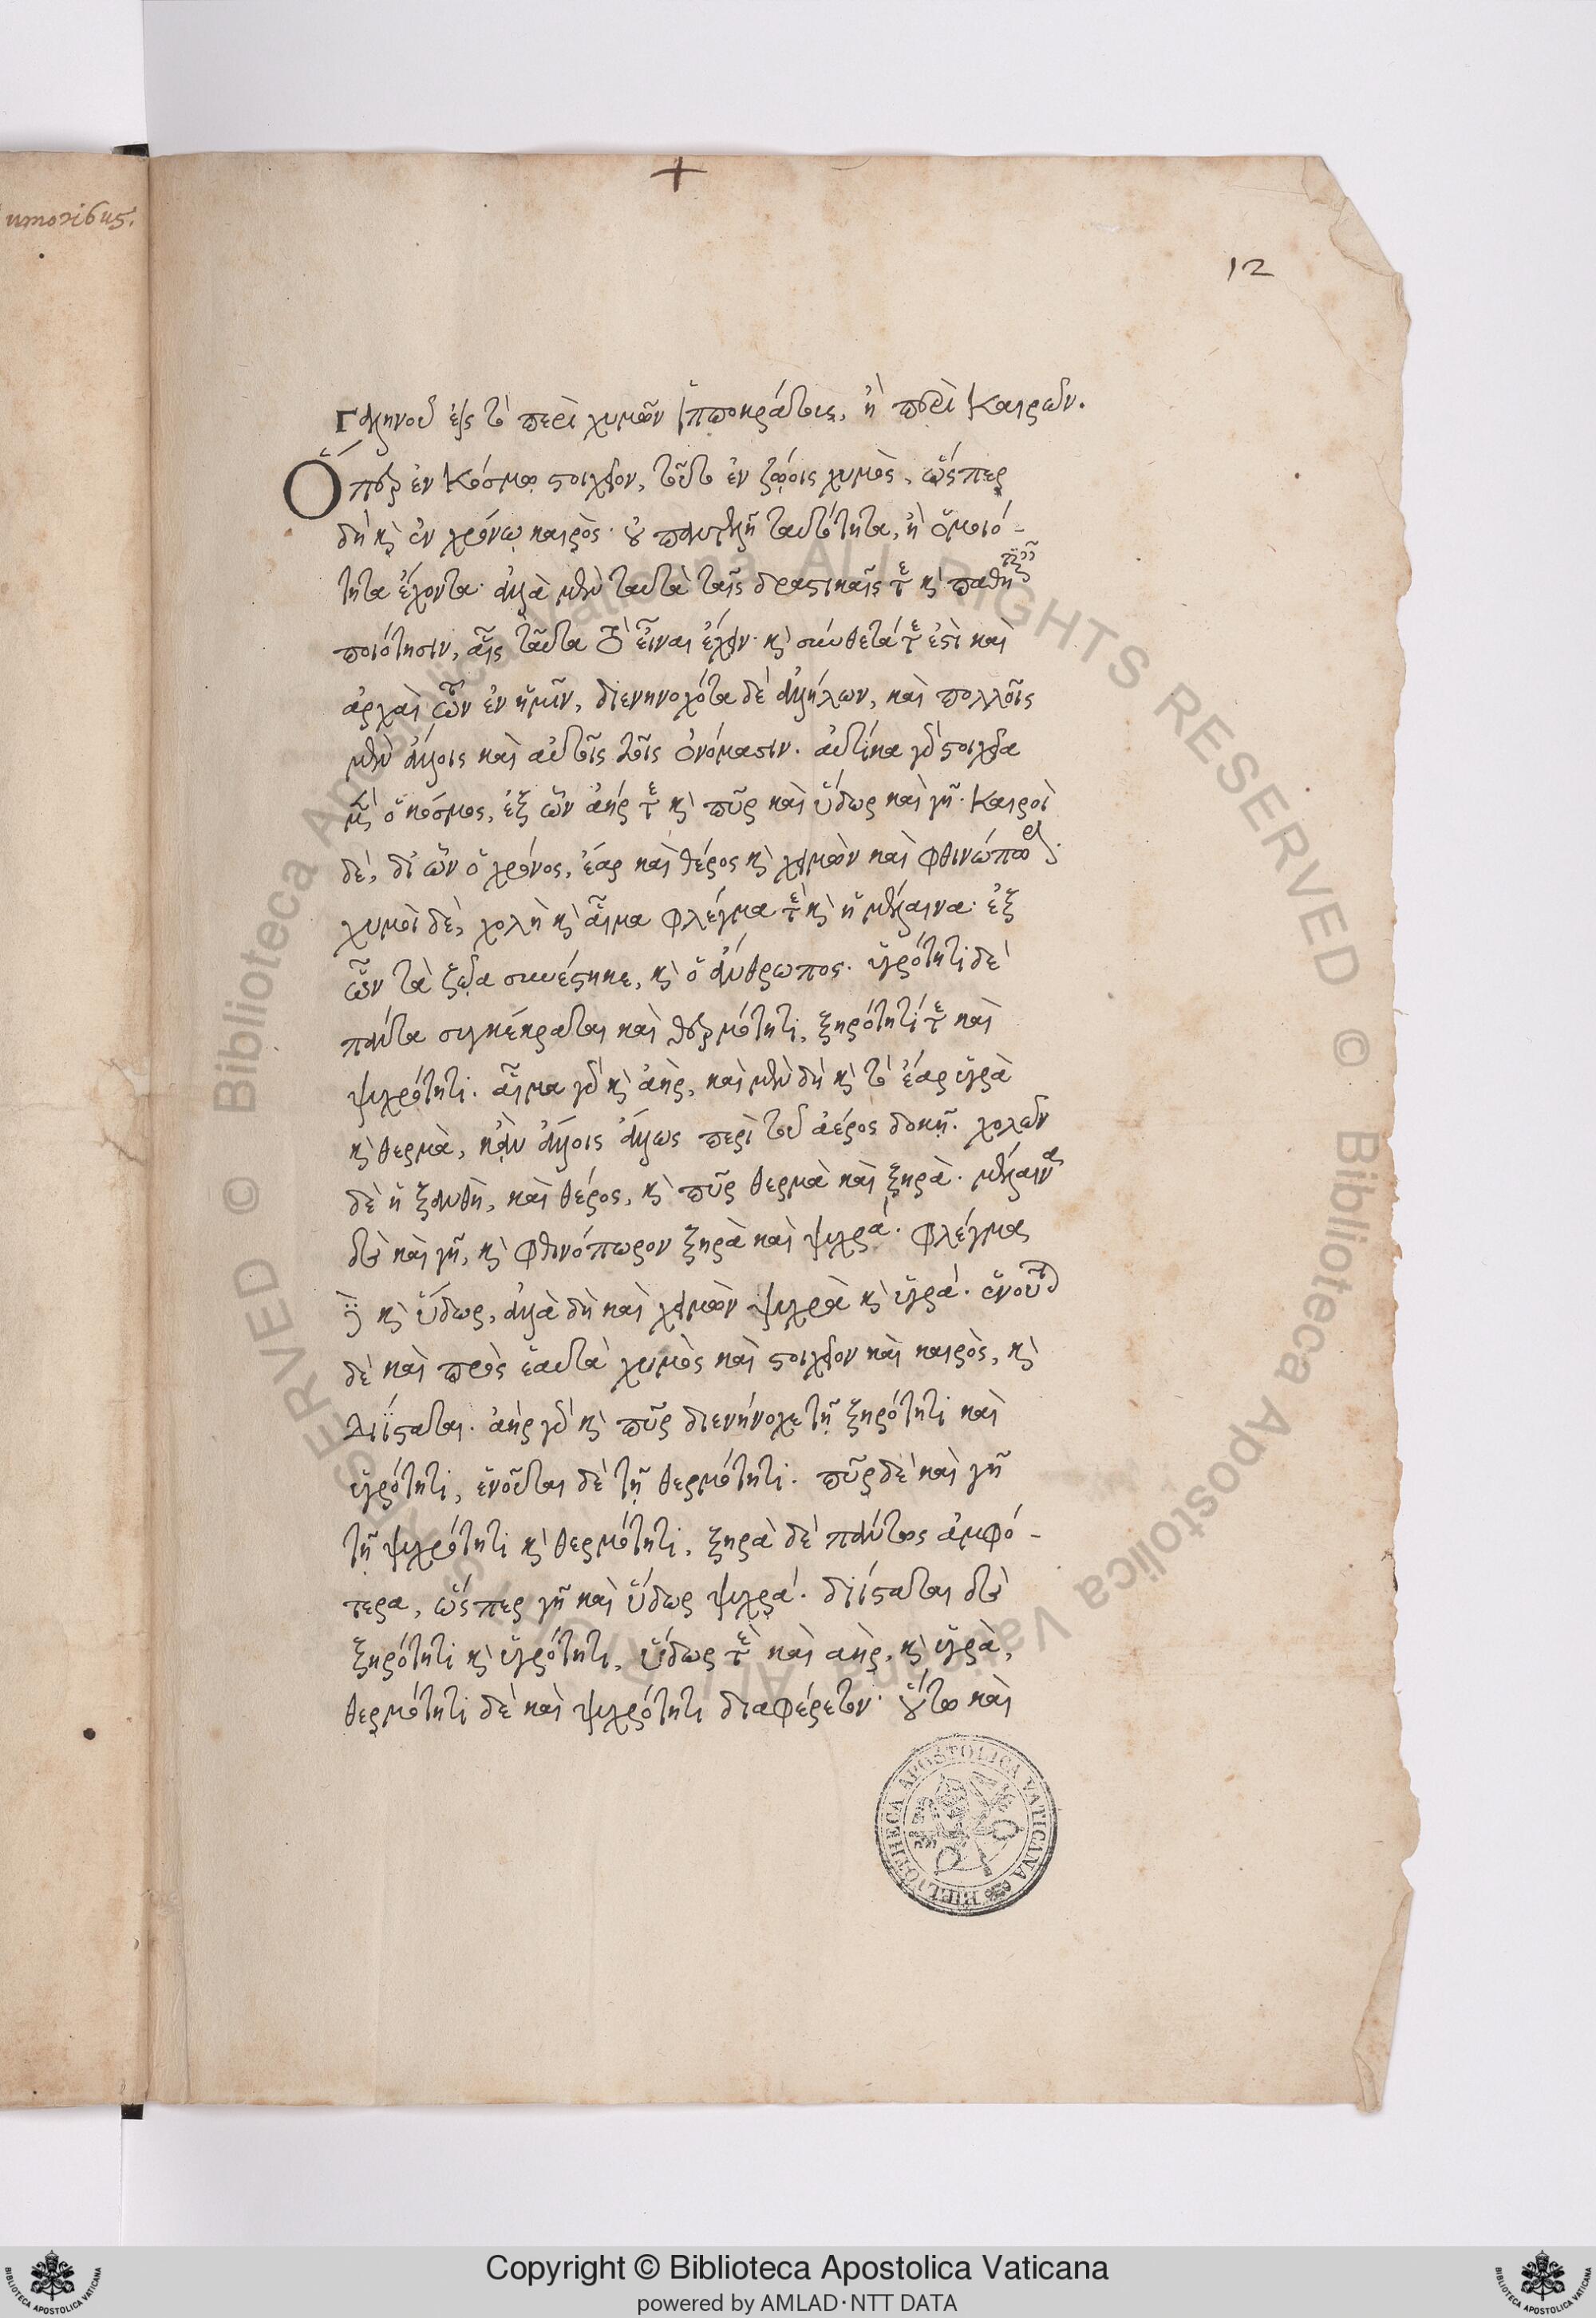 umoribus.
12
Γαληνοῦ εἰς τὸ περὶ χυμῶν Ἱπποκράτους, ἢ περὶ καιρῶν.
Ὅπερ ἐν κόσμῳ στοιχεῖον, τοῦτο ἐν ζῴοις χυμὸς, ὥσπερ
δὴ καὶ ἐν χρόνῳ καιρὸς· οὐ παντελῆ ταυτότητα, ἢ ὁμοιό-
τητα ἔχοντα· ἀλλὰ μὲν ταυτὰ ταῖς δραστικαῖς τε καὶ
ποιότησιν, αἷς ταῦτα τὸ εἶναι ἔχειν· καὶ σύνθετά τε ἐστὶ καὶ
ἀρχαὶ τῶν ἐν ἡμῖν, διενηνοχότα δὲ ἀλλήλων, καὶ πολλοῖς
μὲν ἄλλοις καὶ αὐτοῖς τοῖς ὀνόμασιν. αὐτίκα γὰρ στοιχεῖα
μὲν ὁ κόσμος, ἐξ ὧν ἀήρ τε καὶ πῦρ καὶ ὕδωρ καὶ γῆ· καιροὶ
δὲ, δι' ὧν ὁ χρόνος, ἔαρ καὶ θέρος καὶ χειμὼν καὶ φθινόπωρον·
χυμοὶ δὲ, χολὴ καὶ αἷμα φλέγμα τὲ καὶ ἡ μέλαινα· ἐξ
ὧν τὰ ζῷα συνέστηκε, καὶ ὁ ἄνθρωπος. ὑγρότητι δὲ
πάντα συγκέκραται καὶ θερμότητι, ξηρότητί τε καὶ
ψυχρότητι. αἷμα γὰρ καὶ ἀὴρ, καὶ μὲν δὴ καὶ τὸ ἔαρ ὑγρὰ
καὶ θερμὰ, κᾂν ἄλλοις ἄλλως περὶ τοῦ ἀέρος δοκῇ. χολῶν
δὲ ἡ ξανθὴ, καὶ θέρος, καὶ πῦρ θερμὰ καὶ ξηρὰ. μέλαινα
δὲ καὶ γῆ, καὶ φθινόπωρον ξηρὰ καὶ ψυχρά. φλέγμα
δὲ καὶ ὕδωρ, ἀλλὰ δὴ καὶ χειμὼν ψυχρὰ καὶ ὑγρά. ἑνοῦται
δὲ καὶ πρὸς ἑαυτὰ χυμὸς καὶ στοιχεῖον καὶ καιρὸς, καὶ
διίσταται. ἀὴρ γὰρ καὶ πῦρ διενήνοχε τῇ ξηρότητι καὶ
ὑγρότητι, ἑνοῦται δὲ τῇ θερμότητι. πῦρ δὲ καὶ γῆ
τῇ ψυχρότητι καὶ θερμότητι, ξηρὰ δὲ πάντως ἀμφό-
τερα, ὥσπερ γῆ καὶ ὕδωρ ψυχρά. διίσταται δὲ
ξηρότητι καὶ ὑγρότητι, ὕδωρ τὲ καὶ ἀὴρ, καὶ ὑγρὰ,
θερμότητι δὲ καὶ ψυχρότητι διαφέρετον· οὕτω καὶ
BIBLIOTHECA APOSTOLICA VATICANA
© Biblioteca Apostolica Vaticana ALL RIGHTS RESERVED © Biblioteca Apostolica Vaticana ALL RIGHTS RESERVED
Copyright © Biblioteca Apostolica Vaticana
powered by AMLAD·NTT DATA